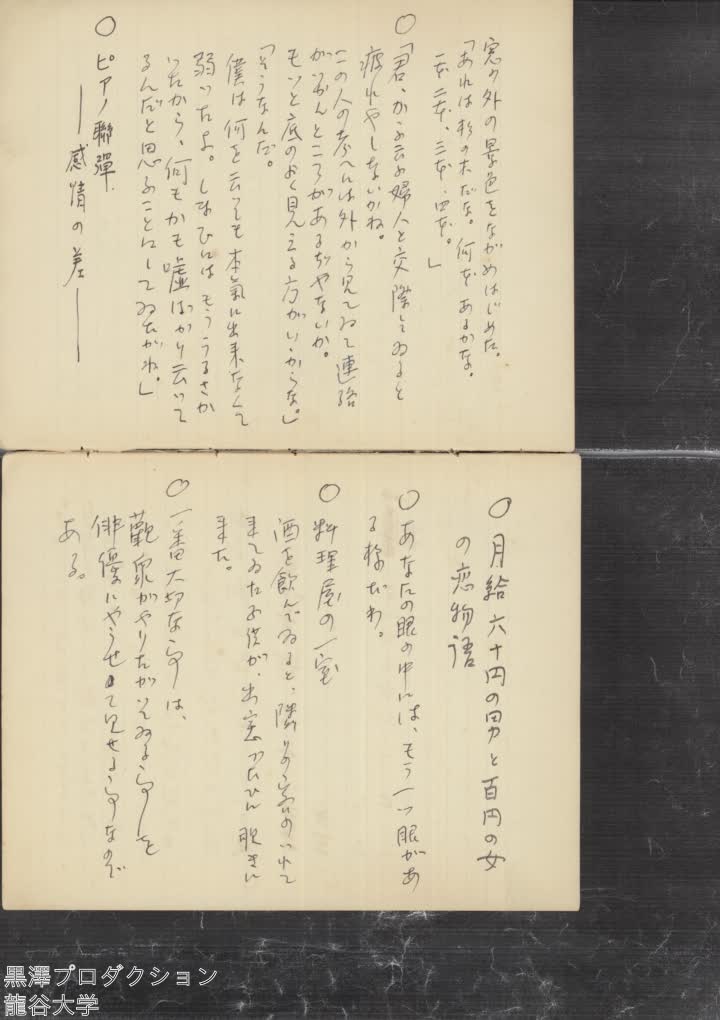 窓の外の景色をながめはじめた。
「あれは杉の木だな。何本あるかな。
一本、二本、三本、四本。」
○「君、かふ云ふ婦人と交際してゐると
疲れやしないかね。
この人の考へには外から見てゐて連絡
がつかんところがあるぢやないか。
もつと底のよく見える方がいゝからな。」
「さうなんだ。
僕は何を云つても本氣に出来なくて
弱いたよ。しまひには もううるさか
つたから、何もかも嘘ばかり云いて
るんだと思ふことにしてゐたがね。」
○ ピアノ聯彈.
——感情の差——
○ 月給六十円の男と百円の女
の恋物語
○ あなたの眼の中には、もう一つ眼があ
る様だわ。
○ 料理屋の一室
酒を飲んでゐると、隣りの室のつれて
来てゐた子供が、出窓づたひに 覗きに
来た。
○ 一番大切な事は、
觀衆がやりたがつてゐる事を
俳優にやらせて見せる事なので
ある。
黒澤プロダクション
龍谷大学